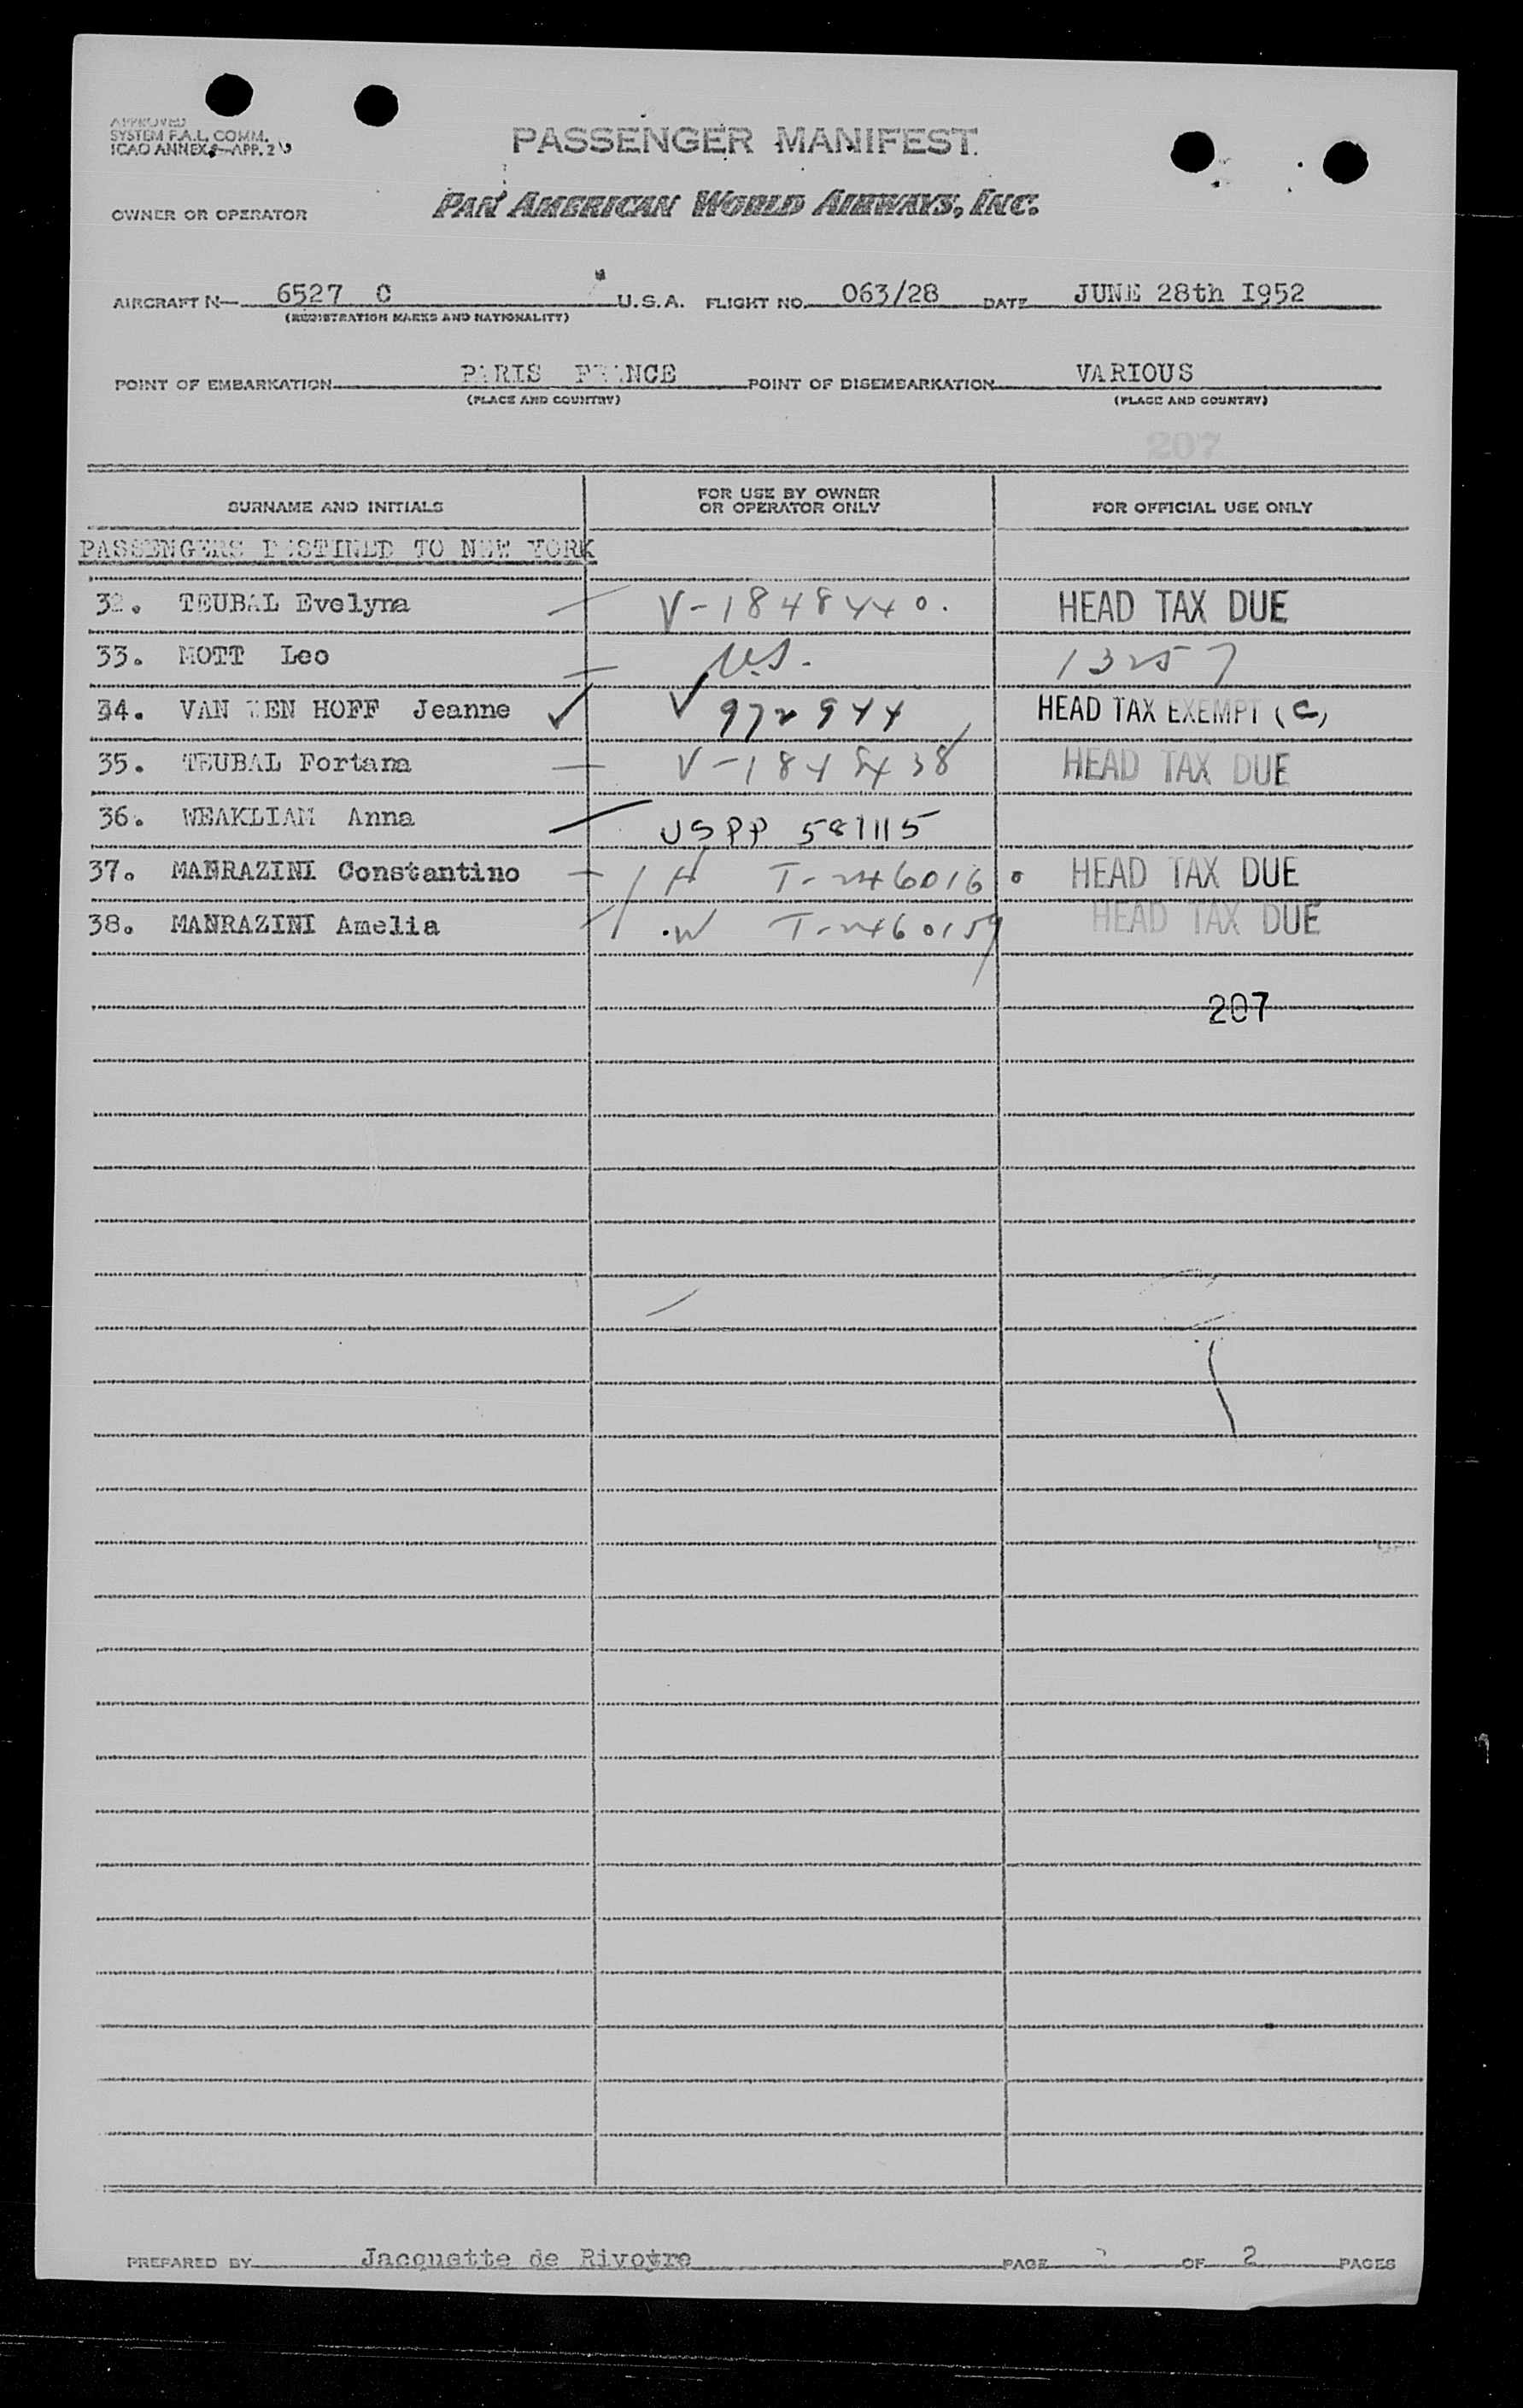 APPROVED
SYSTEM F.A.L. COMM.
ICAO ANNEX 9—APP. 2
PASSENGER MANIFEST
OWNER OR OPERATOR PAN AMERICAN WORLD AIRWAYS, INC.
AIRCRAFT N— 6527 C U.S.A. FLIGHT NO. 063/28 DATE JUNE 28th I952
(REGISTRATION MARKS AND NATIONALITY)
POINT OF EMBARKATION PARIS FRANCE POINT OF DISEMBARKATION VARIOUS
(PLACE AND COUNTRY) (PLACE AND COUNTRY)
207
SURNAME AND INITIALS FOR USE BY OWNER OR OPERATOR ONLY FOR OFFICIAL USE ONLY
PASSENGERS DESTINED TO NEW YORK
32. TEUBAL Evelyna V-1848440. HEAD TAX DUE
33. MOTT Leo U.S. 13257
34. VAN DEN HOFF Jeanne ✓ V 972944 HEAD TAX EXEMPT (C)
35. TEUBAL Fortana V-1848438 HEAD TAX DUE
36. WEAKLIAM Anna USPP 581115
37. MANRAZINI Constantino H T-246016 HEAD TAX DUE
38. MANRAZINI Amelia W T-2460159 HEAD TAX DUE
207
PREPARED BY Jacquette de Rivoyre PAGE OF 2 PAGES